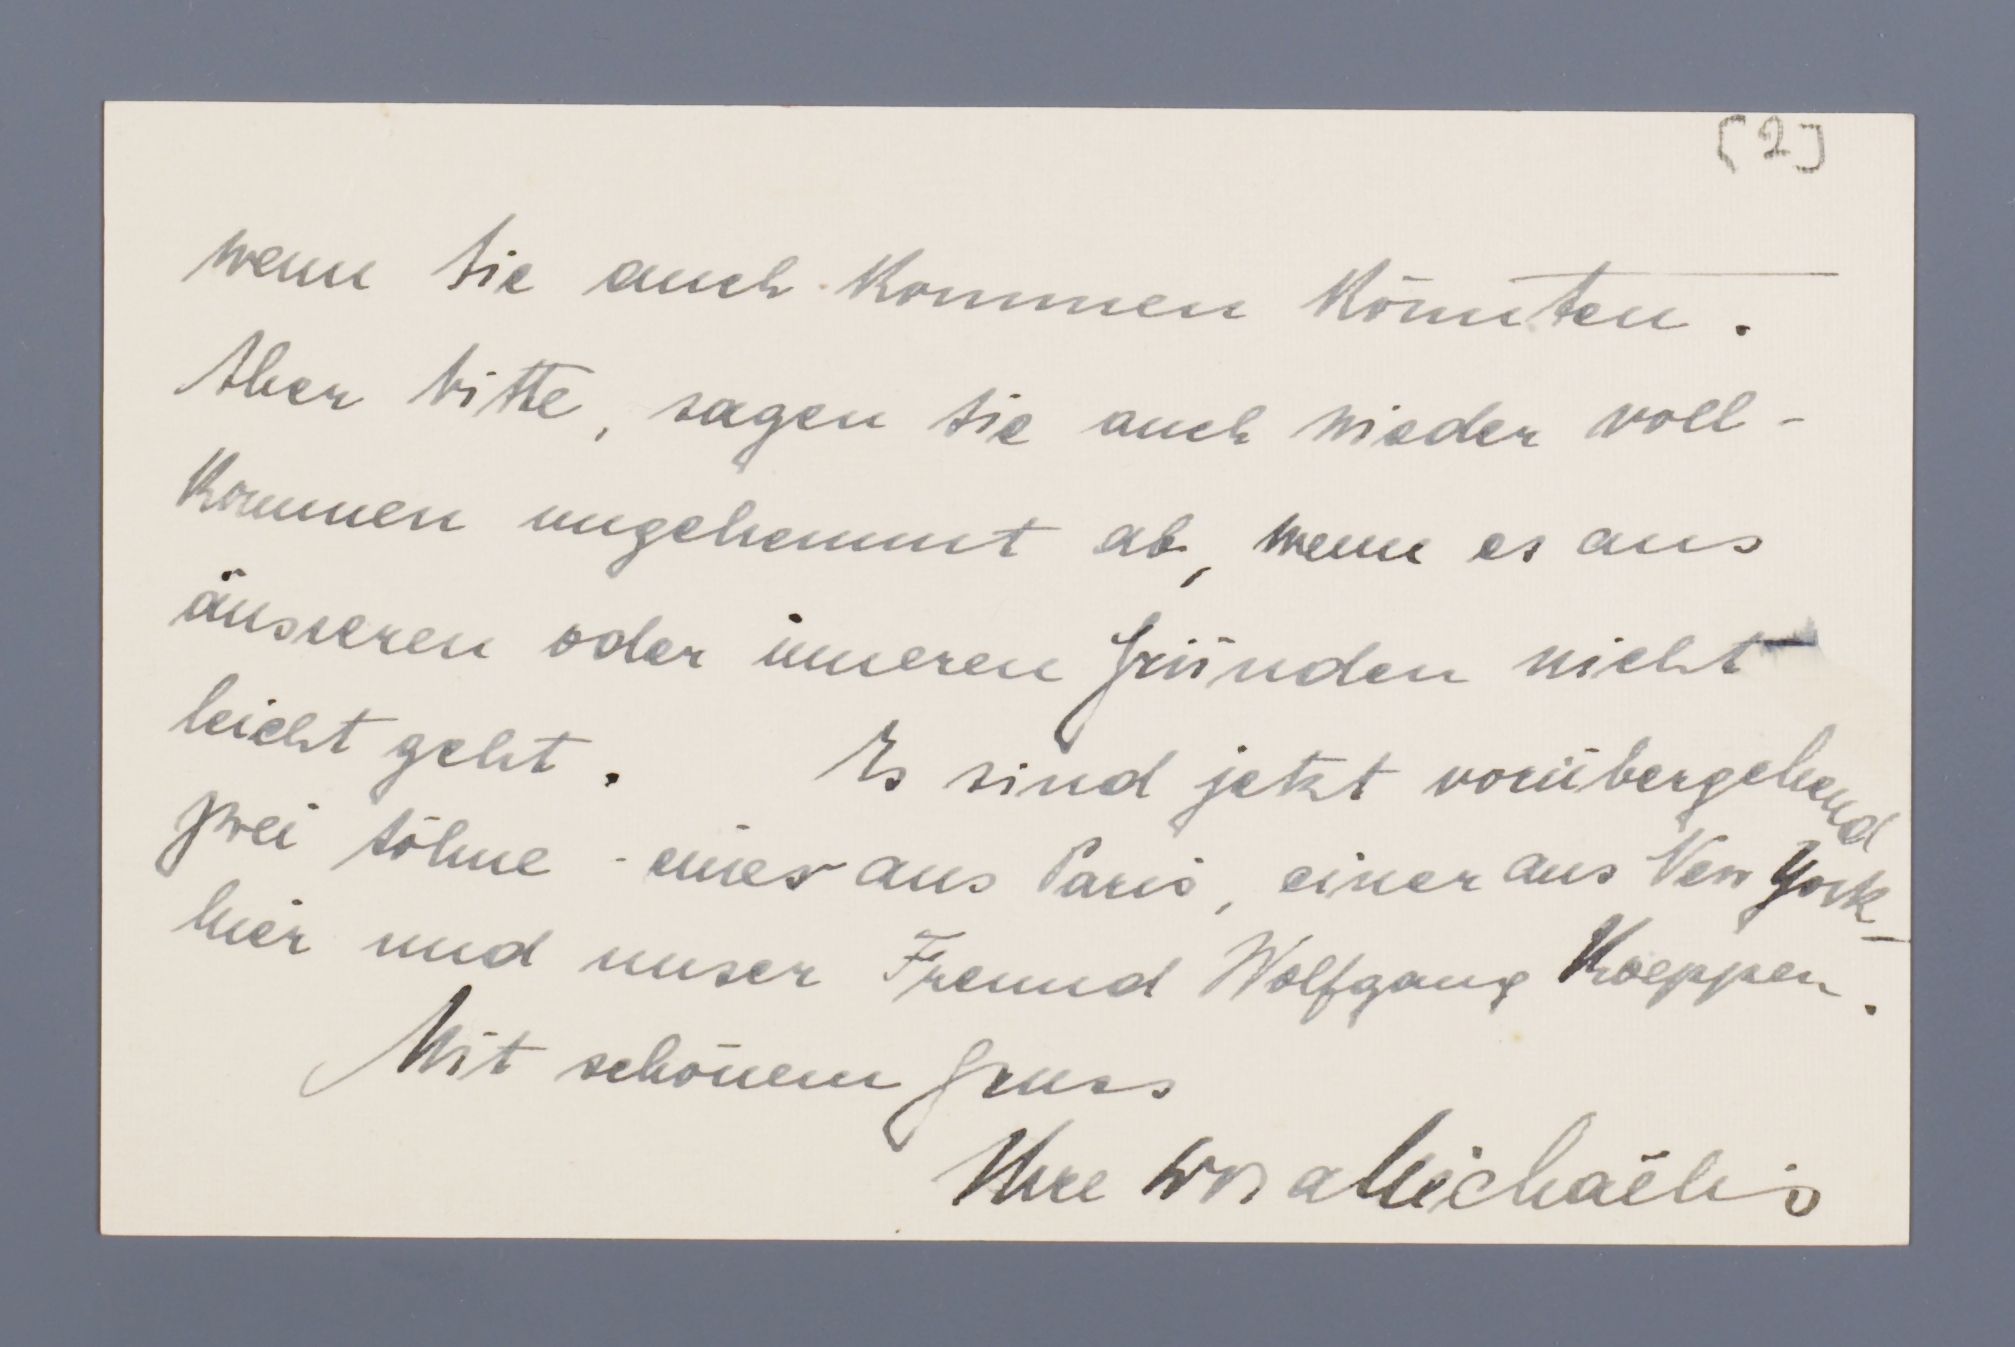 [2]
wenn Sie auch kommen könnten.
Aber bitte, sagen Sie auch wieder voll-
kommen ungehemmt ab, wenn es aus
äusseren oder inneren Gründen nicht
leicht geht. Es sind jetzt vorübergehend
zwei Söhne - einer aus Paris, einer aus New York -
hier und unser Freund Wolfgang Koeppen.
Mit schönem Gruss
Ihre Eva Michaëlis